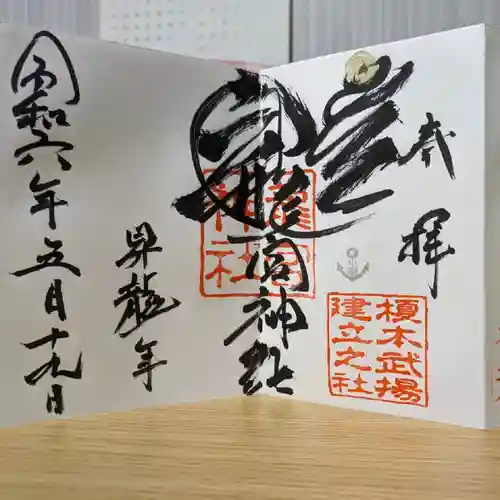 奉拝
榎本武揚
建立之社
龍宮
神社
龍宮神社
昇龍年
令和六年五月十九日